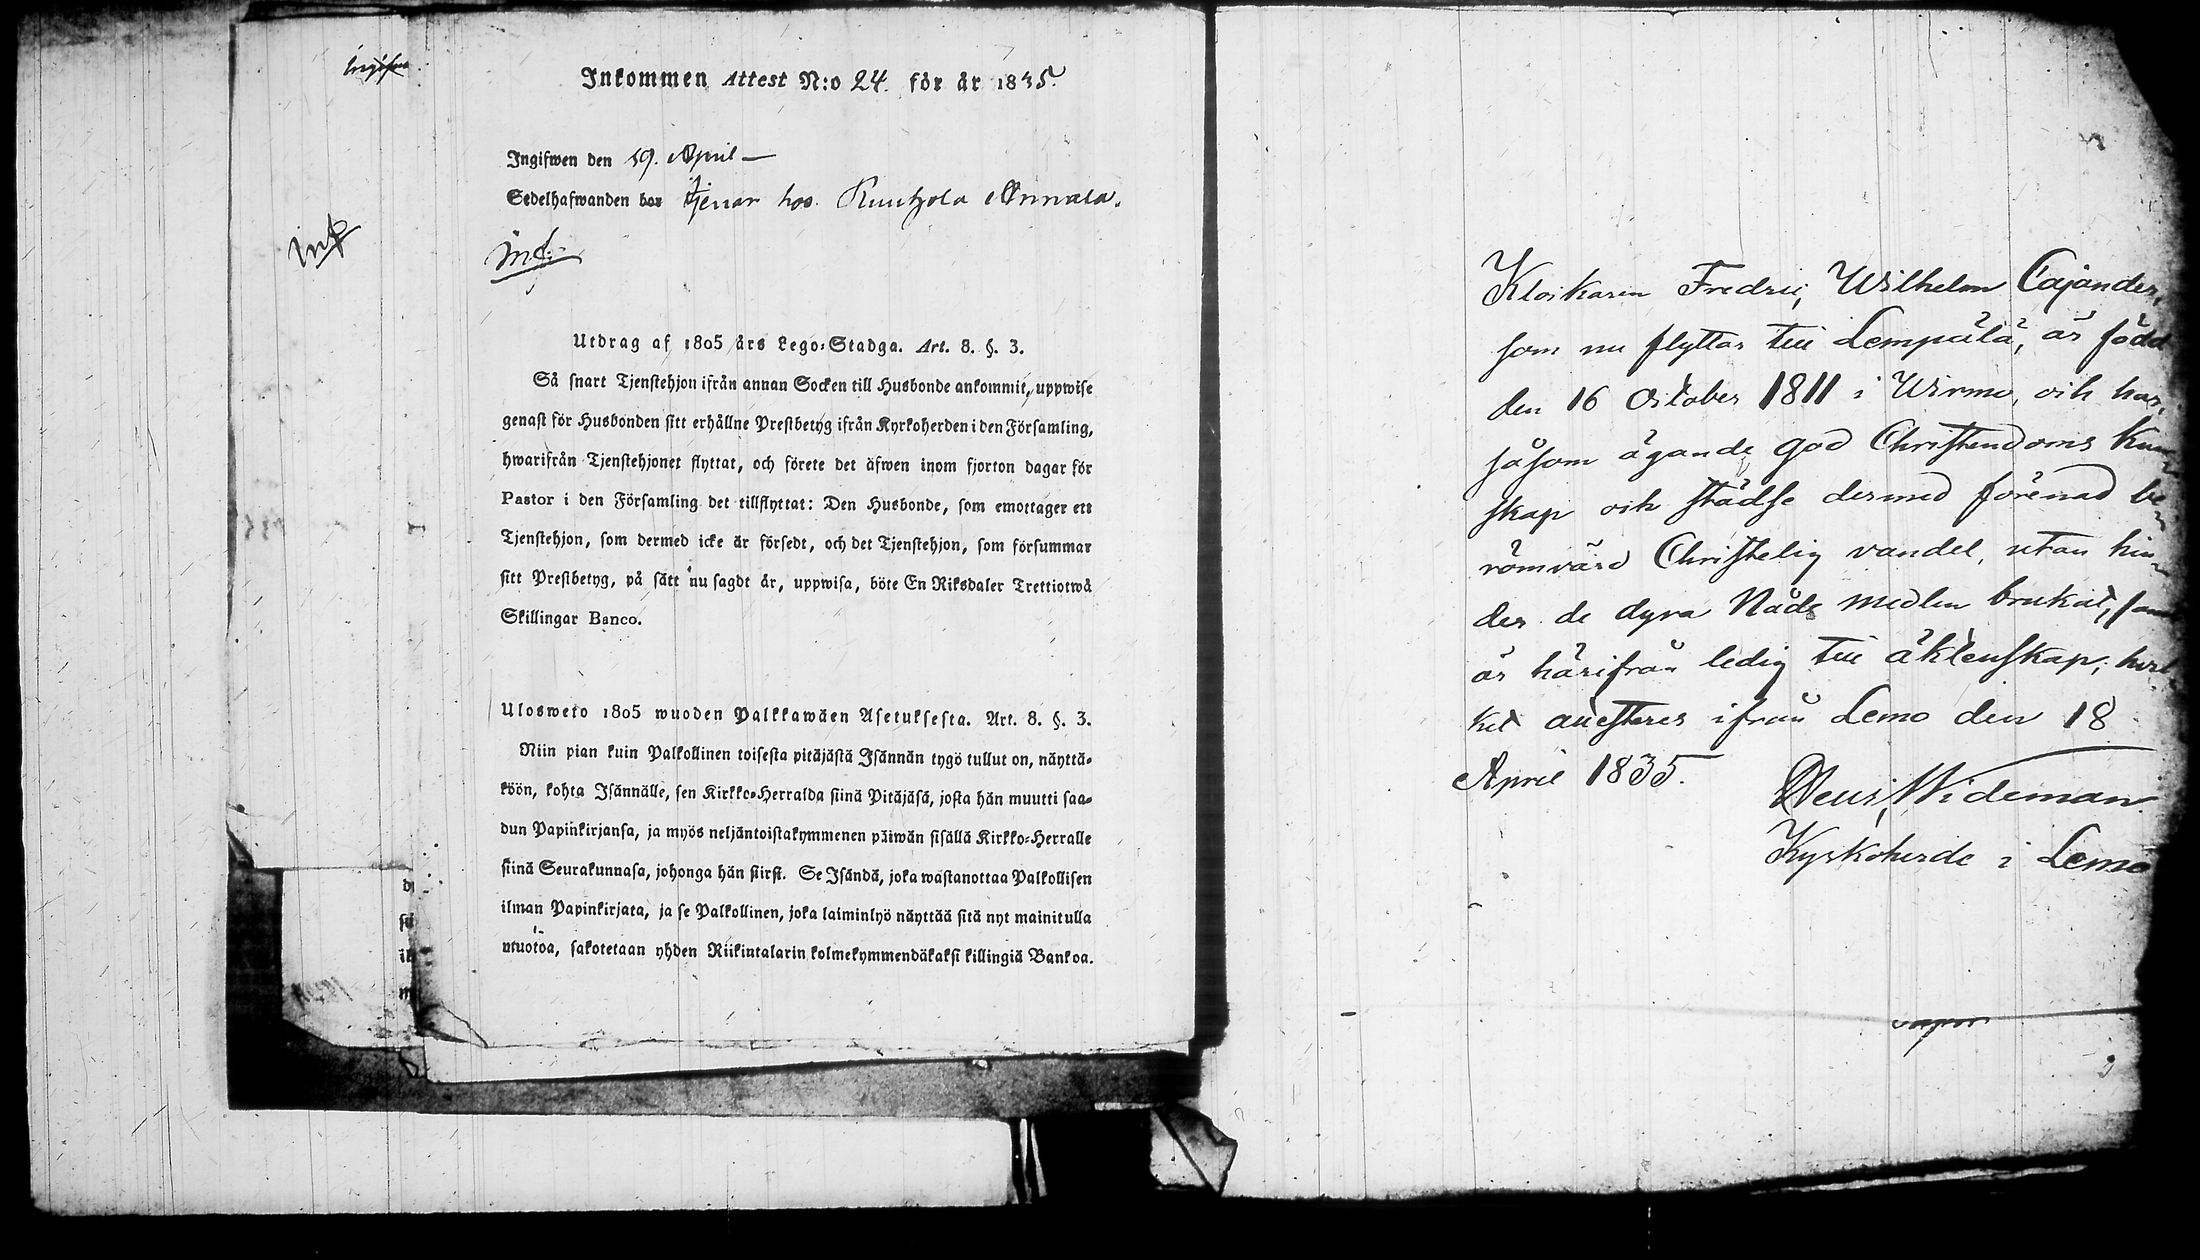 Ingifven
Inkommen Attest N:o 24. för år 1835.
Ingifwen den 19. April —
Sedelhafwanden bor tjenar hos Kuutjola Annala.
inf
inf.
Utdrag af 1805 års Lego-Stadga. Art. 8. §. 3.
Så snart Tjenstehjon ifrån annan Socken till Husbonde ankommit, uppwise
genast för Husbonden sitt erhållne Prestbetyg ifrån Kyrkoherden i den Församling,
hwarifrån Tjenstehjonet flyttat, och förete det äfwen inom fjorton dagar för
Pastor i den Församling det tillflyttat: Den Husbonde, som emottager ett
Tjenstehjon, som dermed icke är försedt, och det Tjenstehjon, som försummar
sitt Prestbetyg, på sätt nu sagdt är, uppwisa, böte En Riksdaler Trettiotwå
Skillingar Banco.
Ulosweto 1805 wuoden Palkkawäen Asetuksesta. Art. 8. §. 3.
Niin pian kuin Palkollinen toisesta pitäjästä Isännän tygö tullut on, näyttä-
köön, kohta Isännälle, sen Kirkko-Herralda siinä Pitäjäsä, josta hän muutti saa-
dun Papinkirjansa, ja myös neljäntoistakymmenen päiwän sisällä Kirkko-Herralle
siinä Seurakunnasa, johonga hän siirsi. Se Isändä, joka wastanottaa Palkollisen
ilman Papinkirjata, ja se Palkollinen, joka laiminlyö näyttää sitä nyt mainitulla
muotoa, sakotetaan yhden Riikintalarin kolmekymmendäkaksi killingiä Bankoa.
Klockaren Fredric Wilhelm Cajander,
som nu flyttar till Lempälä, är född
den 16 October 1811 i Wirmo, och har,
såsom ägande god Christendoms kun-
skap och städse dermed förenad be-
römvärd Christelig vandel, utan hin-
der de dyra Nåde medlen brukat, samt
är härifrån ledig till äktenskap; hvil-
ket attesteres ifrån Lemo den 18
April 1835.
Wideman
Kyrkoherde i Lemo